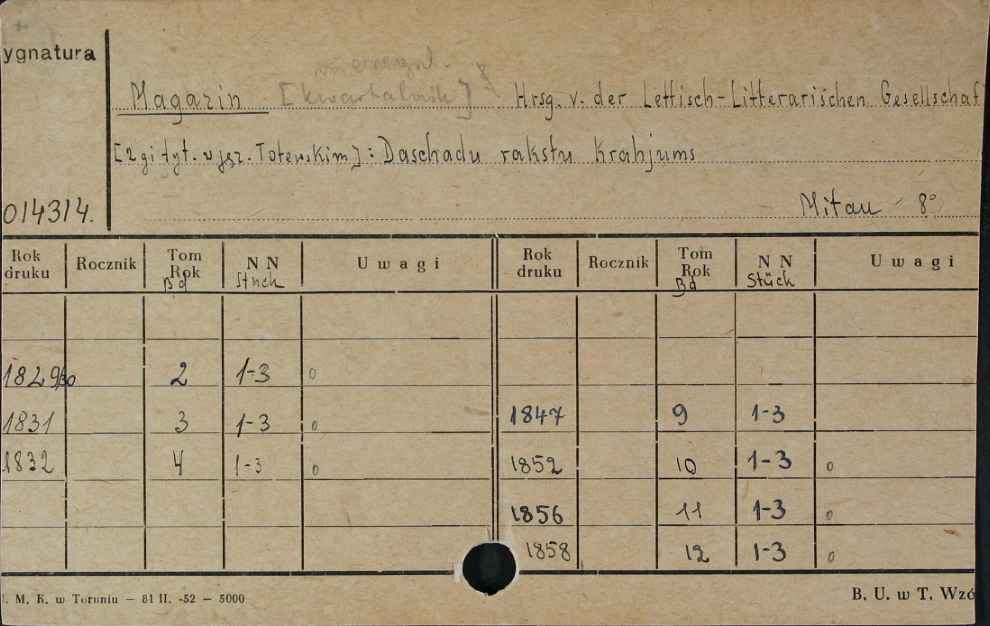 ygnatura
nieregul.
Magazin [kwartalnik] Hrsg. v. der Lettisch-Litterärischen Gesellschaf
[2gi tyt. w jęz. Łotewskim]: Daschadu rakstu krahjums
014314.
Mitau 8°
Rok druku Rocznik Tom Rok Bd N N Stück Uwagi Rok druku Rocznik Tom Rok Bd N N Stück Uwagi
1829/30 2 1-3 0
1831 3 1-3 0 1847 9 1-3
1832 4 1-3 0 1852 10 1-3 0
1856 11 1-3 0
1858 12 1-3 0
. M. K. w Toruniu — 81 II. -52 — 5000
B. U. w T. Wzó